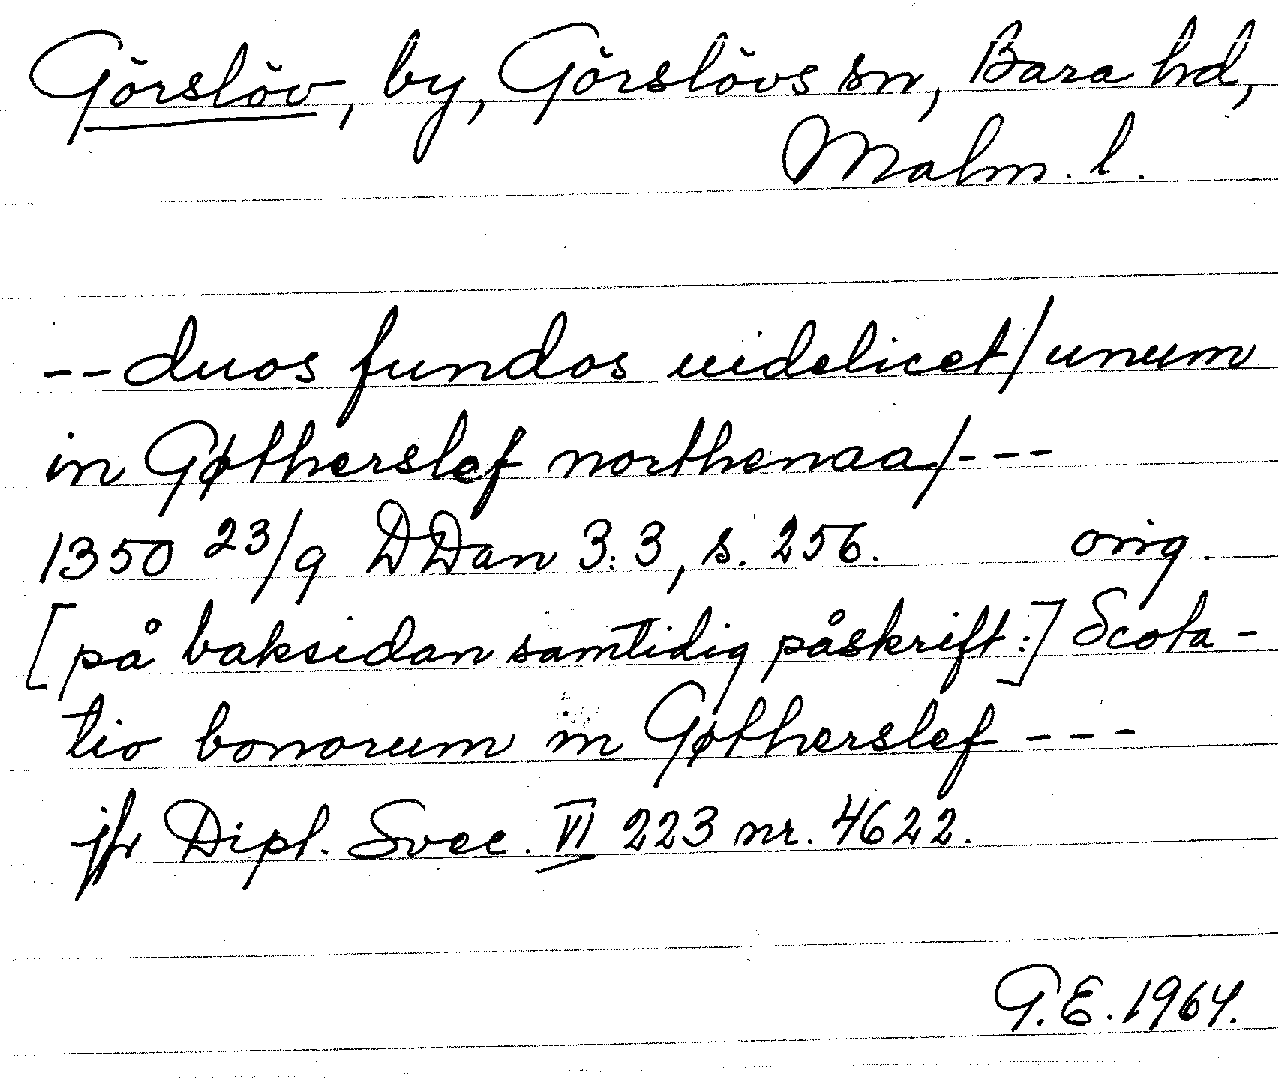 Görslöv, by, Görslövs sn, Bara hd,
Malm. l.
-- duos fundos uidelicet / unum
in Gøtherslef northenaa / ---
1350 23/9 DDan 3:3, s. 256. orig.
[på baksidan samtidig påskrift:] Scota-
tio bonorum in Gøtherslef ---
jfr Dipl. Svec. VI 223 nr. 4622.
G.E. 1964.